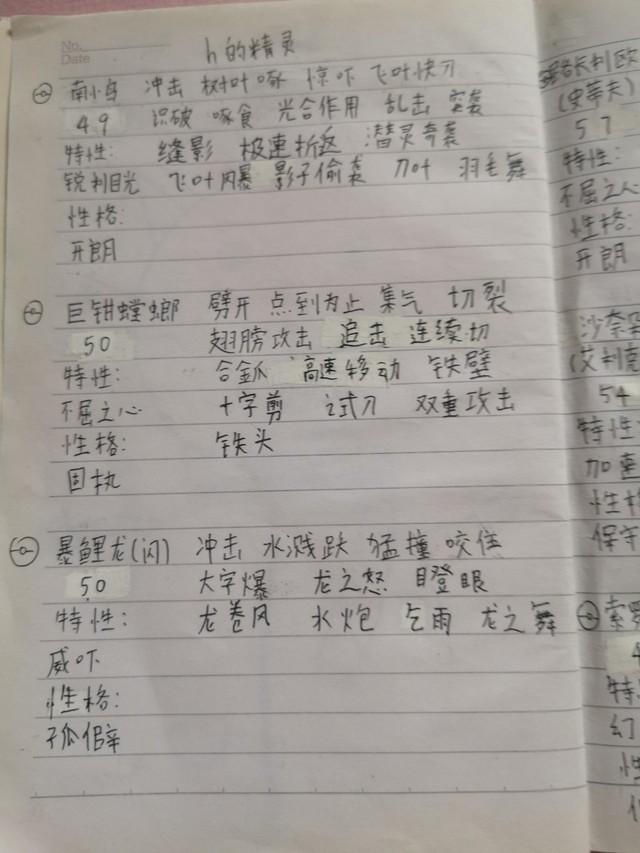 No.
Date
h的精灵
南小鸟 冲击 树叶 啄 惊吓 飞叶快刀
49 识破 啄食 光合作用 乱击 突袭
特性: 缝影 极速折返 潜灵奇袭
锐利目光 飞叶风暴 影子偷袭 刀叶 羽毛舞
性格:
开朗
巨钳螳螂 劈开 点到为止 集气 切裂
50 翅膀攻击 追击 连续切
特性: 合金爪 高速移动 铁壁
不屈之心 十字剪 试刀 双重攻击
性格: 铁头
固执
暴鲤龙(闪) 冲击 水溅跃 猛撞 咬住
50 大字爆 龙之怒 瞪眼
特性: 龙卷风 水炮 乞雨 龙之舞
威吓
性格:
孤僻
长利欧
(史蒂夫)
57
特性:
不屈之心
性格:
开朗
沙奈朵
54
特性
加速
性格
保守
索罗
4
特
幻
性